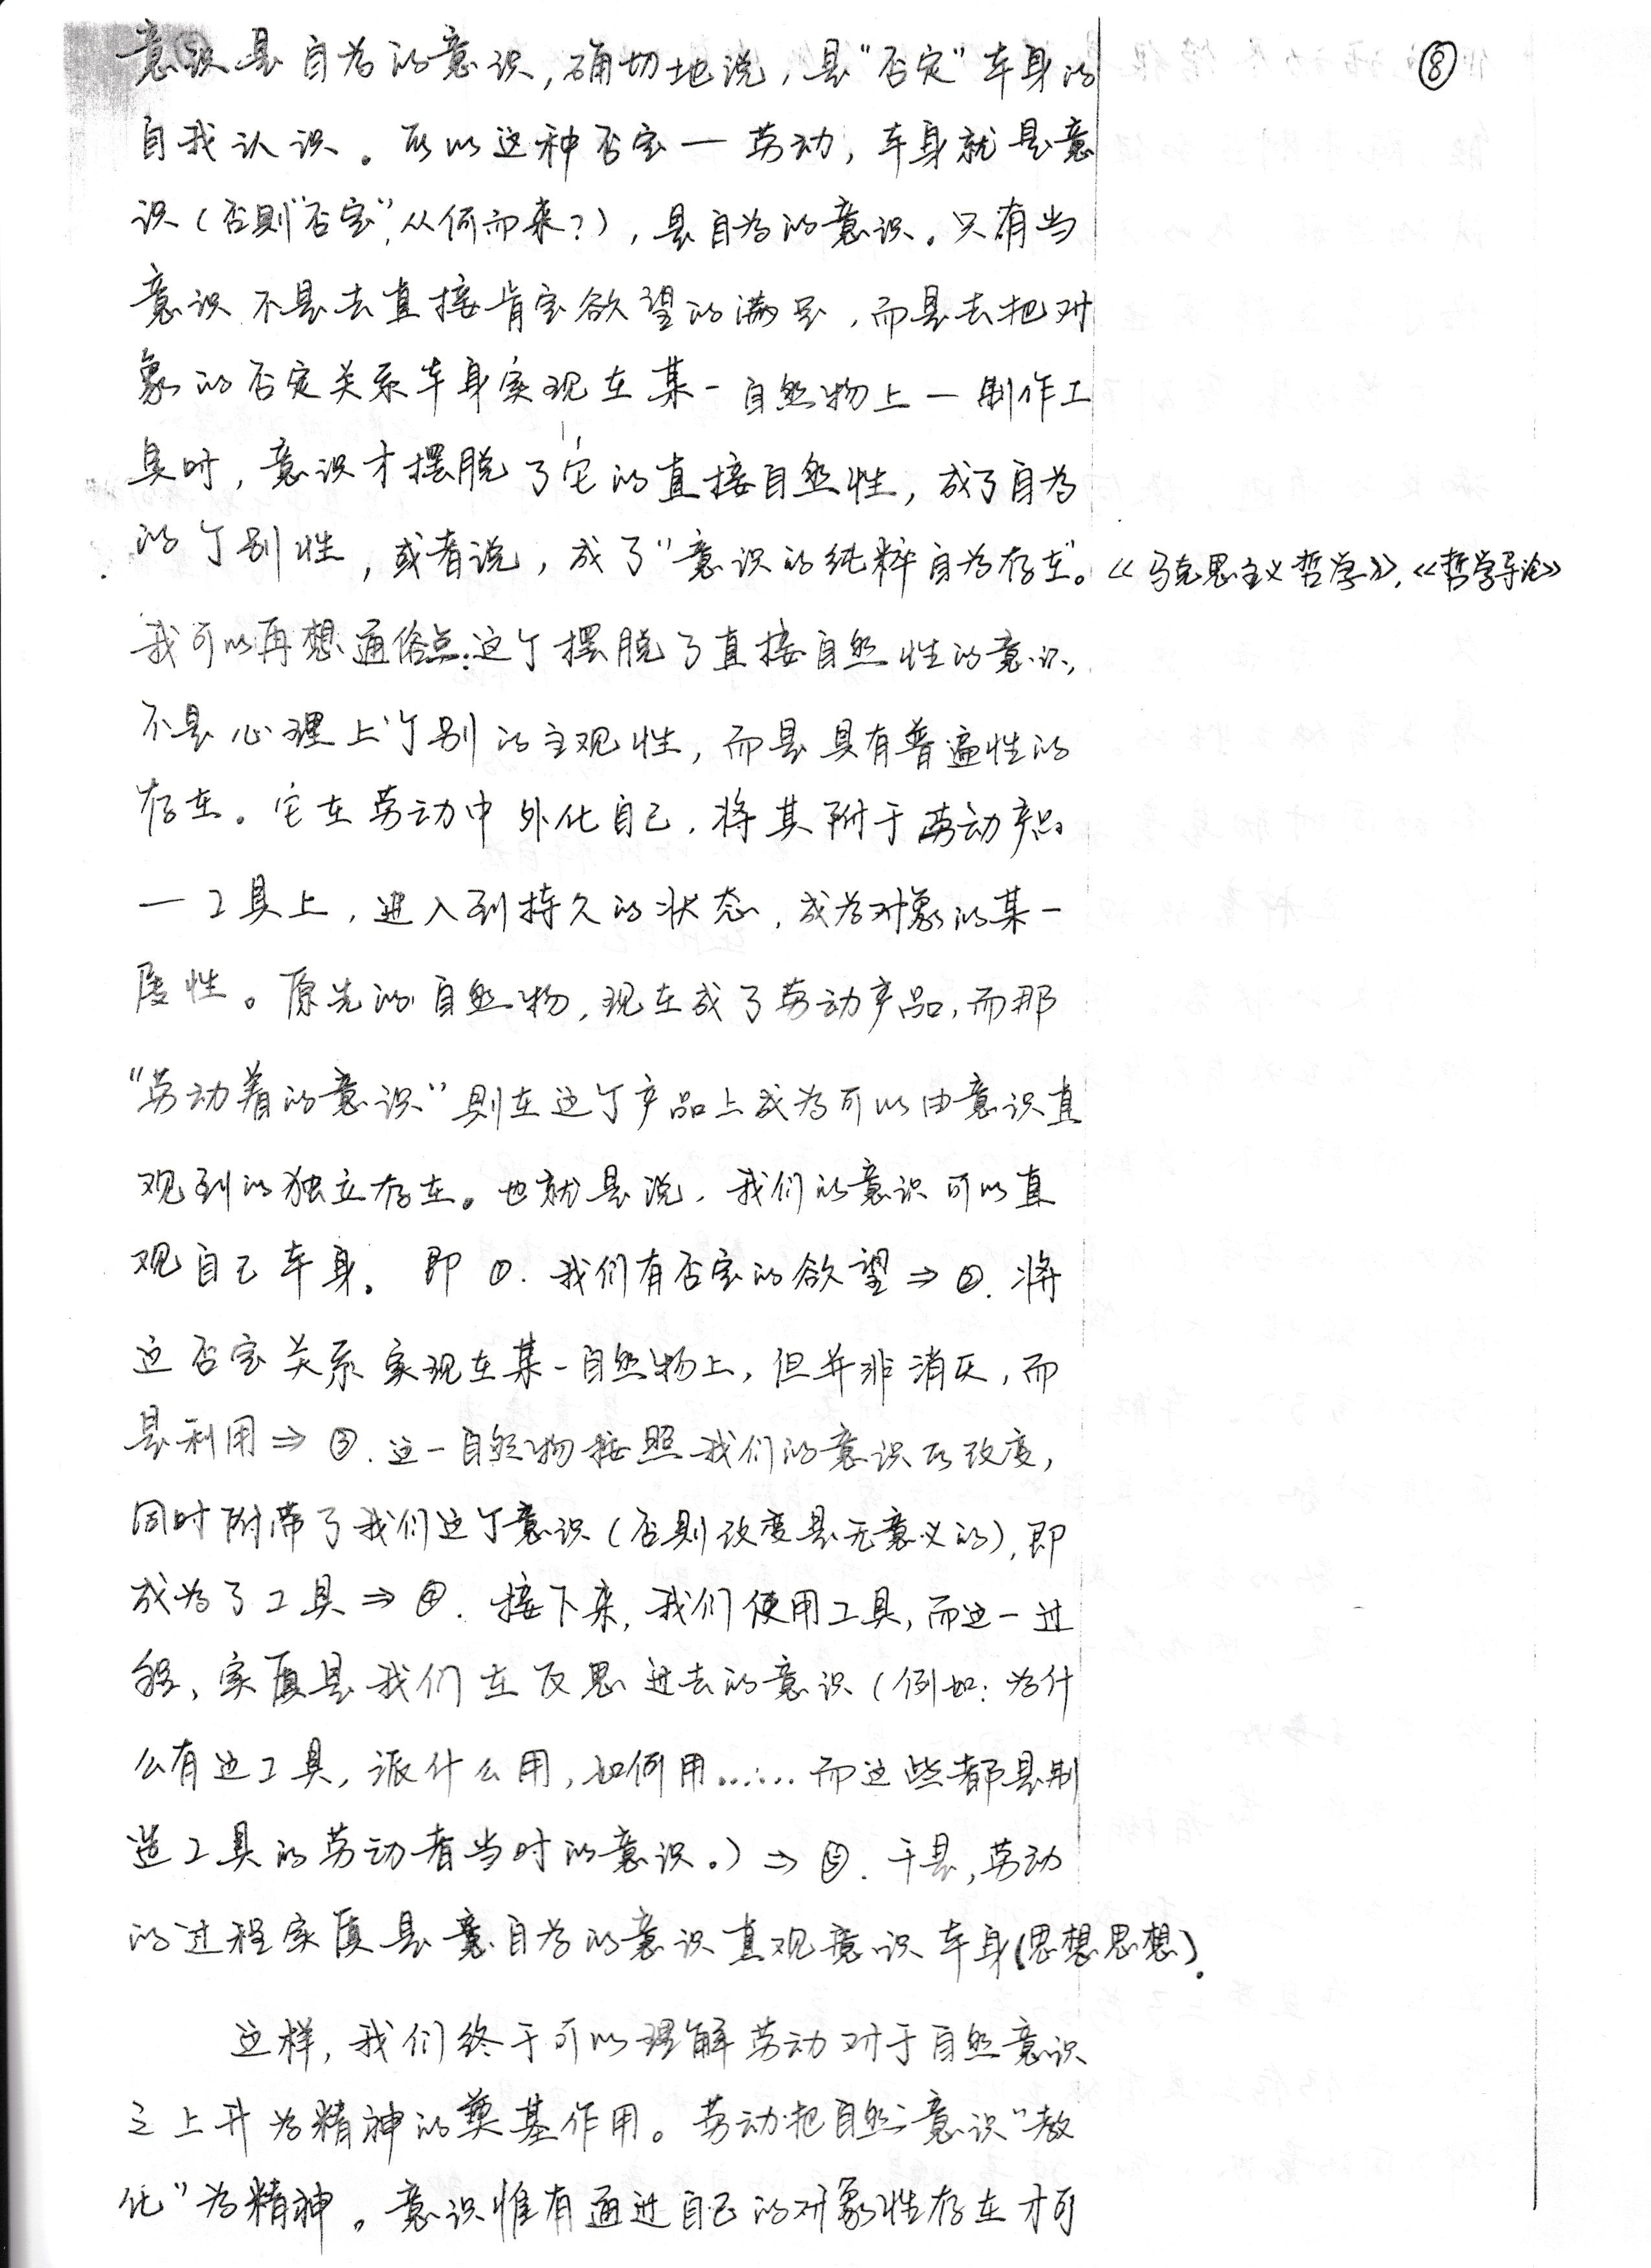 ⑧
意识是自为的意识，确切地说，是“否定”本身的
自我认识。所以这种否定—劳动，本身就是意
识（否则“否定”，从何而来？），是自为的意识。只有当
意识不是去直接肯定欲望的满足，而是去把对
象的否定关系本身实现在某一自然物上—制作工
具时，意识才摆脱了它的直接自然性，成了自为
的个别性，或者说，成了“意识的纯粹自为存在”。《马克思主义哲学》，《哲学导论》
我可以再想通俗点：这个摆脱了直接自然性的意识，
不是心理上个别的主观性，而是具有普遍性的
存在。它在劳动中外化自己，将其附于劳动产品
—工具上，进入到持久的状态，成为对象的某一
属性。原先的自然物，现在成了劳动产品，而那
“劳动着的意识”则在这个产品上成为可以由意识直
观到的独立存在。也就是说，我们的意识可以直
观自己本身。即①．我们有否定的欲望⇒②．将
这否定关系实现在某一自然物上，但并非消灭，而
是利用⇒③．这一自然物按照我们的意识所改变，
同时附带了我们这个意识（否则改变是无意义的），即
成为了工具⇒④．接下来，我们使用工具，而这一过
程，实质是我们在反思过去的意识（例如：为什
么有这工具，派什么用，如何用……而这些都是制
造工具的劳动者当时的意识。）⇒⑤．于是，劳动
的过程实质是意自为的意识直观意识本身（思想思想）．
这样，我们终于可以理解劳动对于自然意识
之上升为精神的奠基作用。劳动把自然意识“教
化”为精神。意识惟有通过自己的对象性存在才可